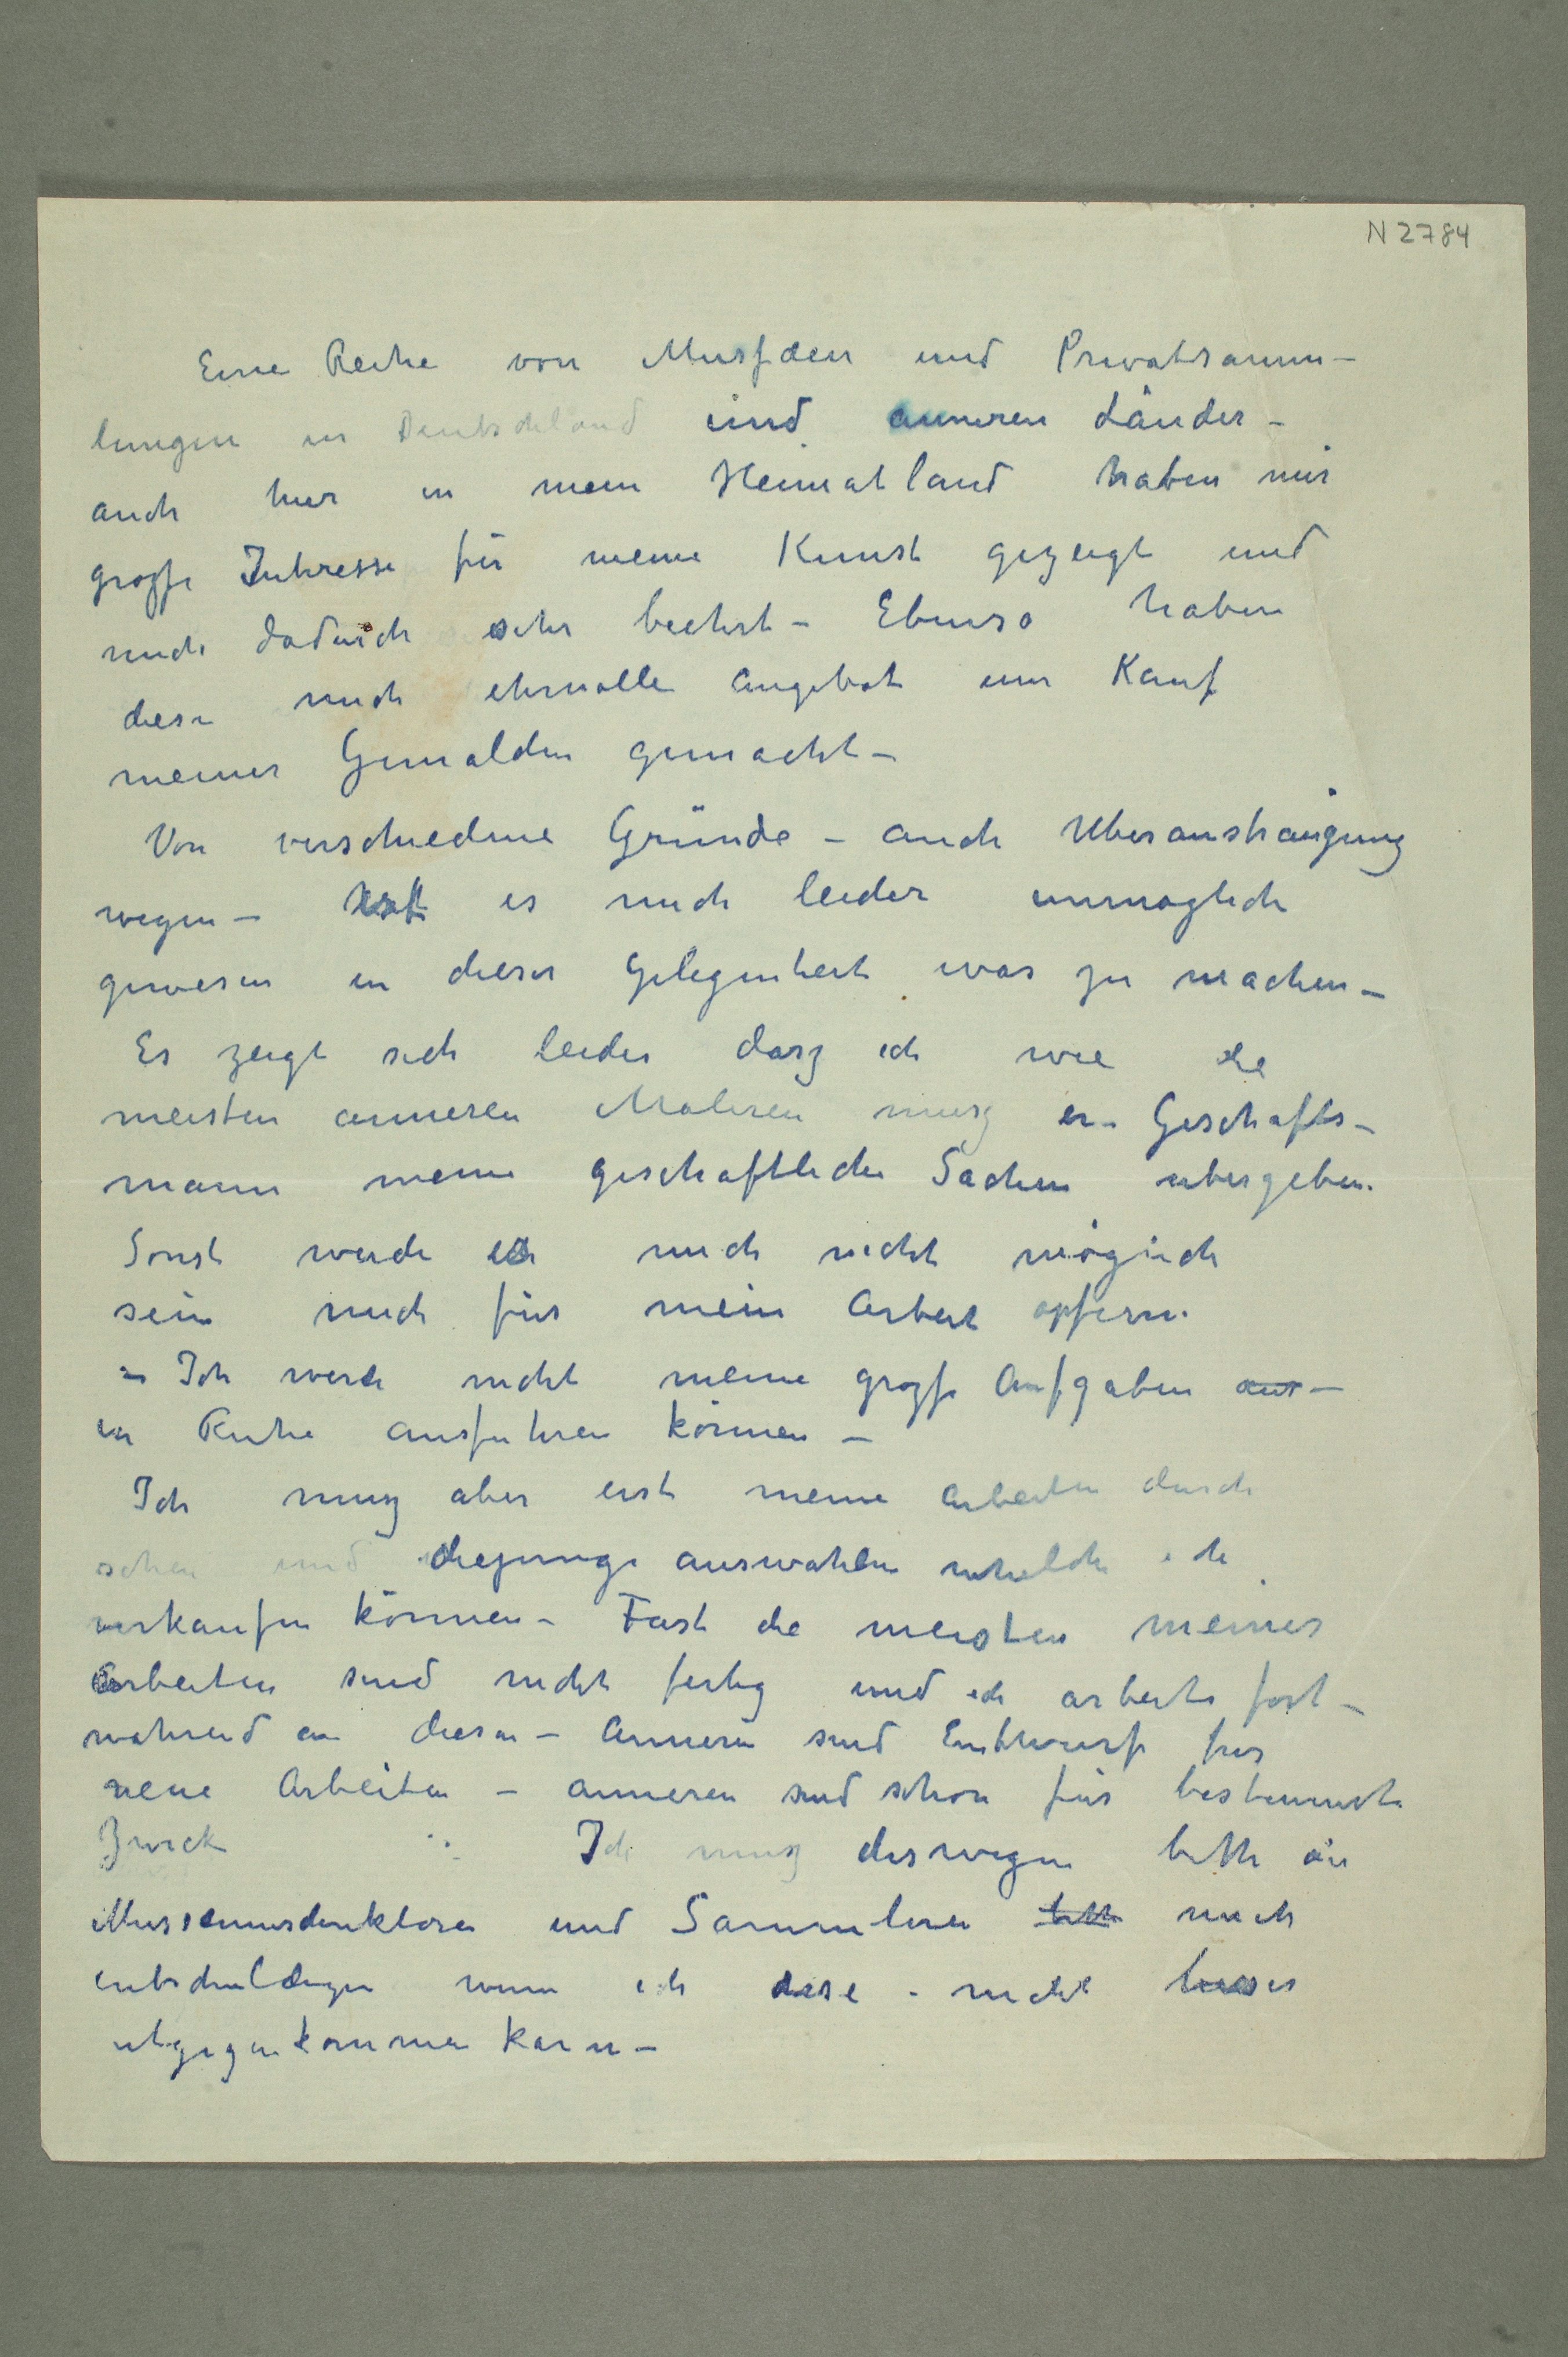 N 2784
Eine Reihe von Musæen und Privatsamm–
lungen in Deutschland und anneren Länder –
auch hier in mein Heimatland haben mir
grosse Intresse für meine Kunst gezeigt und
mich dadurch sehr beehrt – Ebenso haben
diese mich ehrvolle Angebot um Kauf
meiner Gemalden gemacht –
Von verschiedene Gründe – auch Uberanstrangung
wegen – ist es mich leider unmoglich
gewesen in dieser Gelegenheit was zu machen –
Es zeigt sich leider dasz ich wie die
meisten anneren Maleren musz ein Geschafts–
mann meine geschaftliche Sachen ubergeben.
Sonst werde es mich nicht möglich
sein mich für mein Arbeit opfern.
– Ich werde nicht meine grosse Aufgaben aus –
in Ruhe ausfuhren können –
Ich musz aber erst meine Arbeiten durch
sehen und diejenige auswahlen whelche ich
verkaufen können – Fast die meisten meiner
Arbeiten sind nicht fertig und ich arbeite fort–
wahrend an diesen – Anneren sind Entwurfe fur
neue Arbeiten – anneren sind schon für bestimmte
Zweck Ich musz deswegen bitte die
Musseumsdirektoren und Sammleren bitte mich
entschuldigen wenn ich diese nicht besser
entgegenkommen kann –